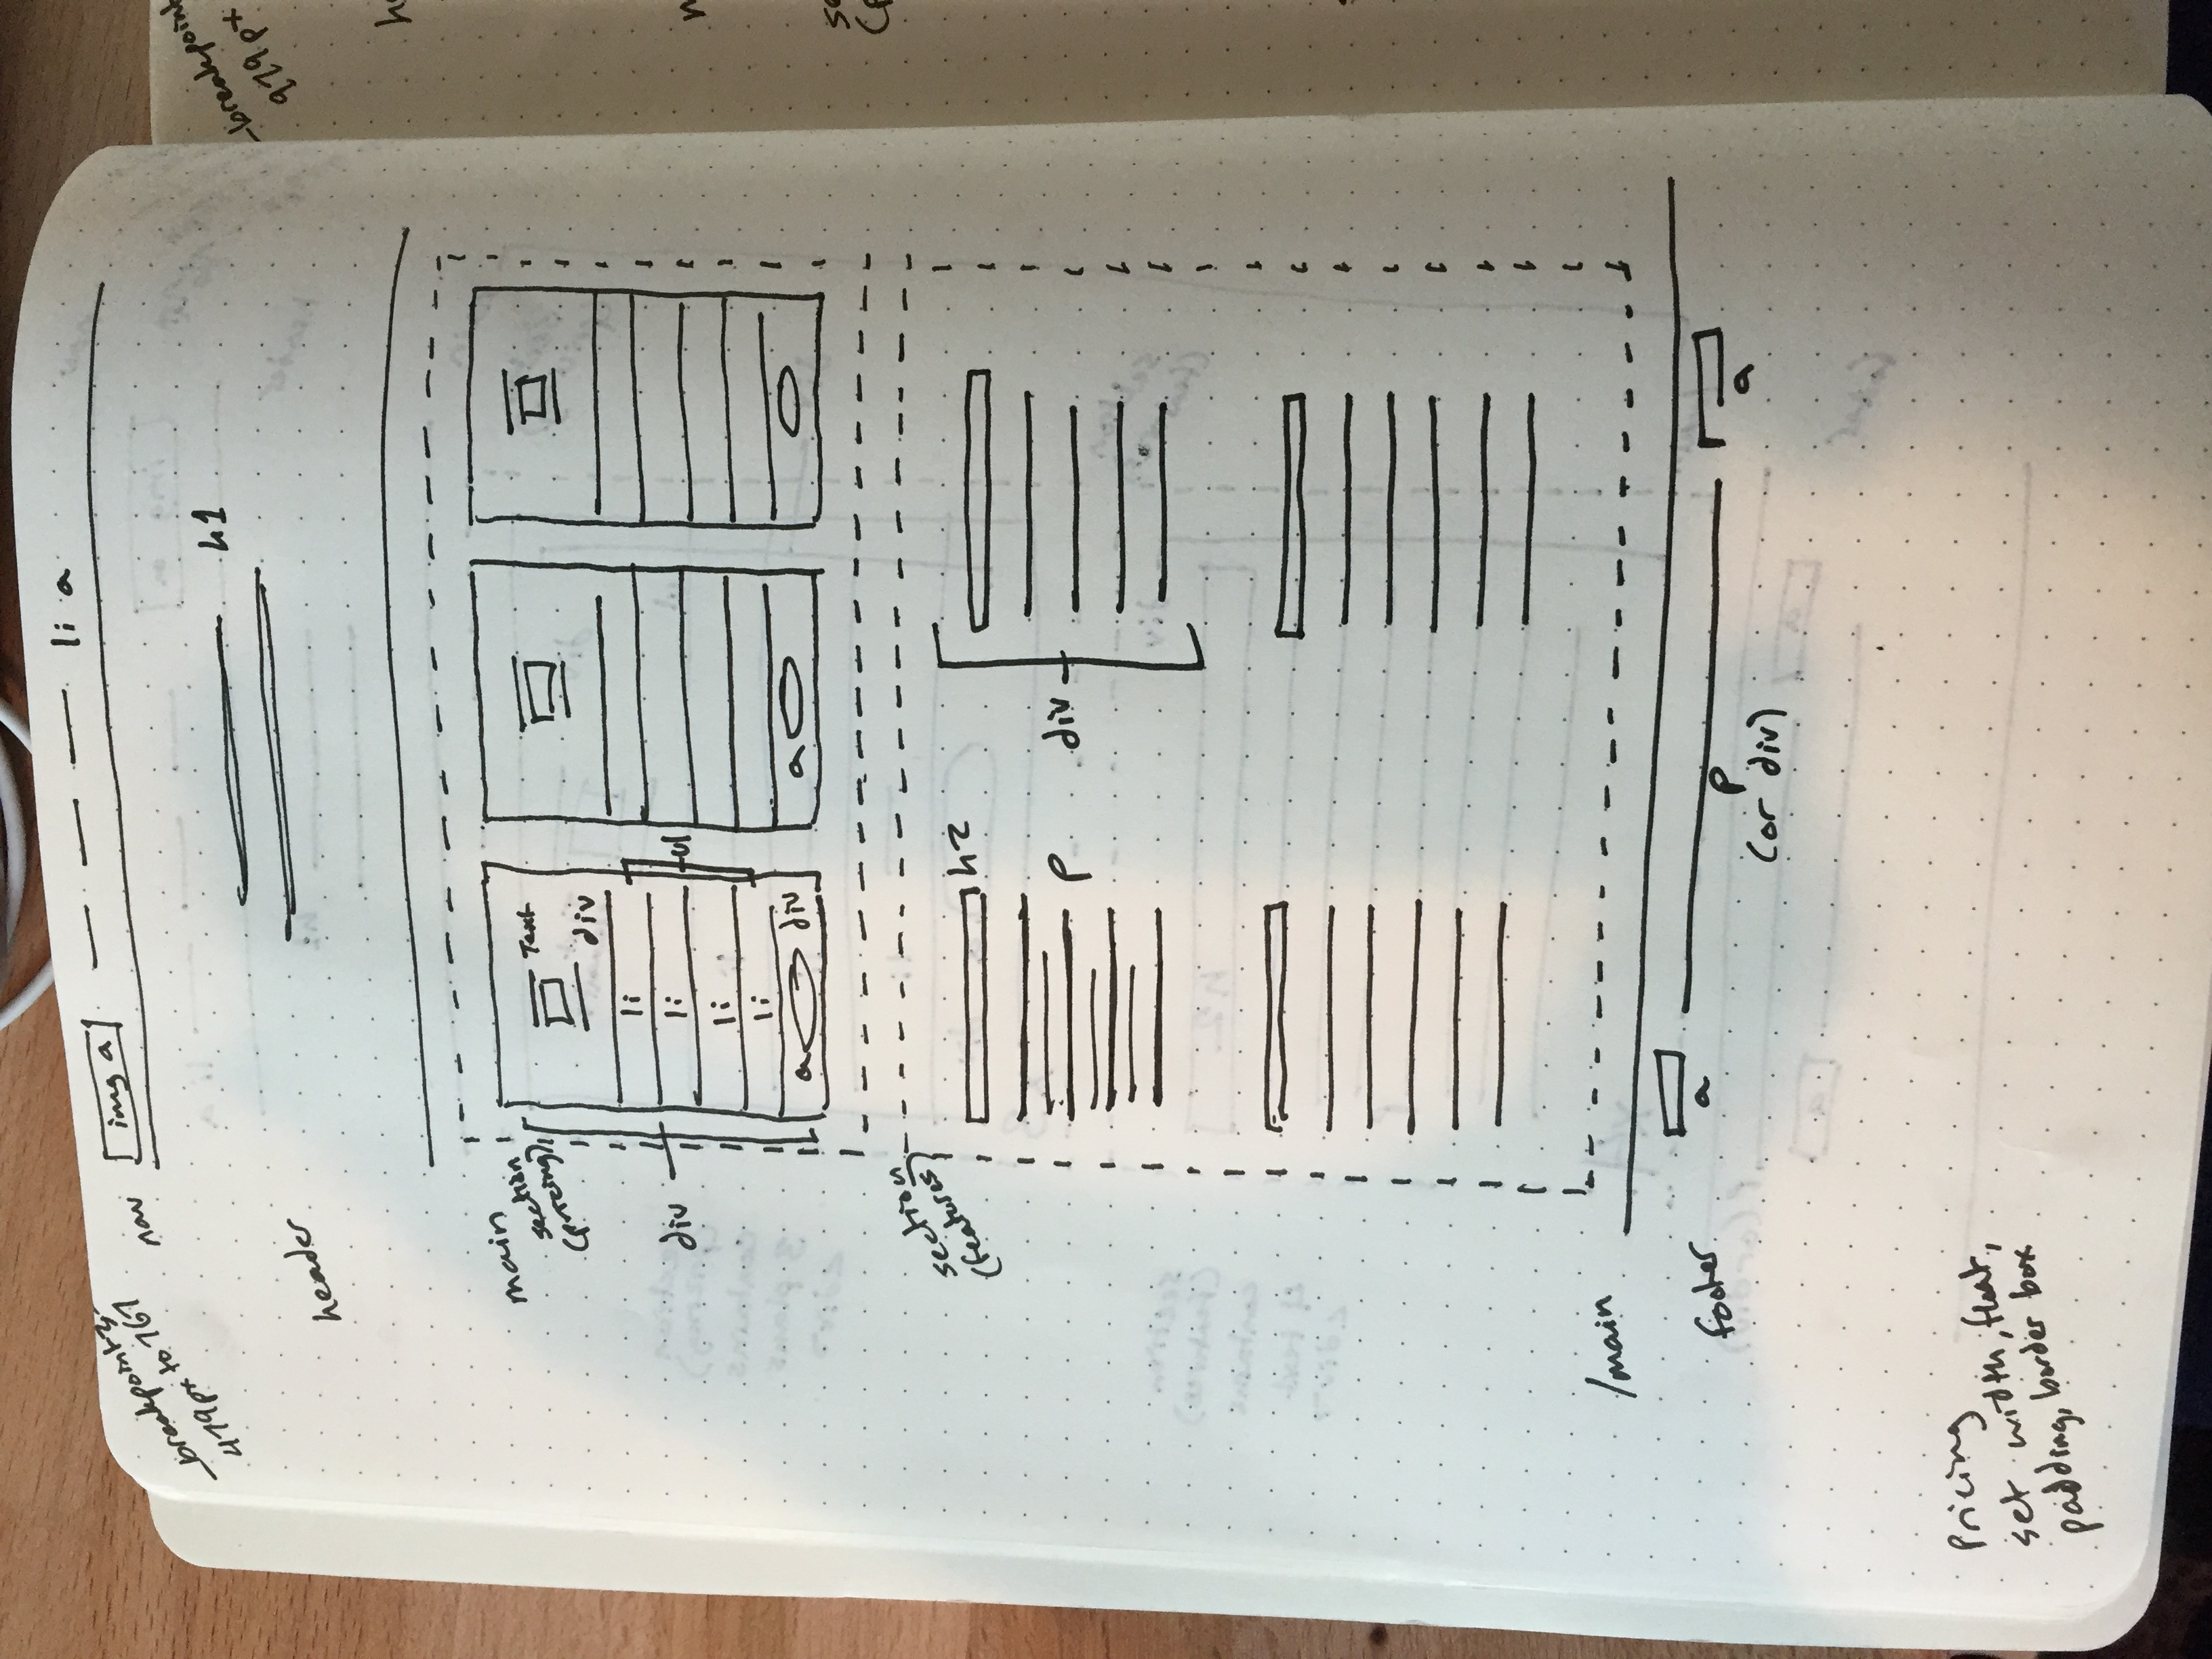 _breakpoint 3_
479px to 767
nav
img a
li a
h1
header
main
section
(pricing)
Text
div
li
li
li
li
ul
div
a
div
a
section
(features)
h2
p
div
/main
footer
a
p
(or div)
a
Pricing
set width, float,
padding, border box
_breakpoint
979px